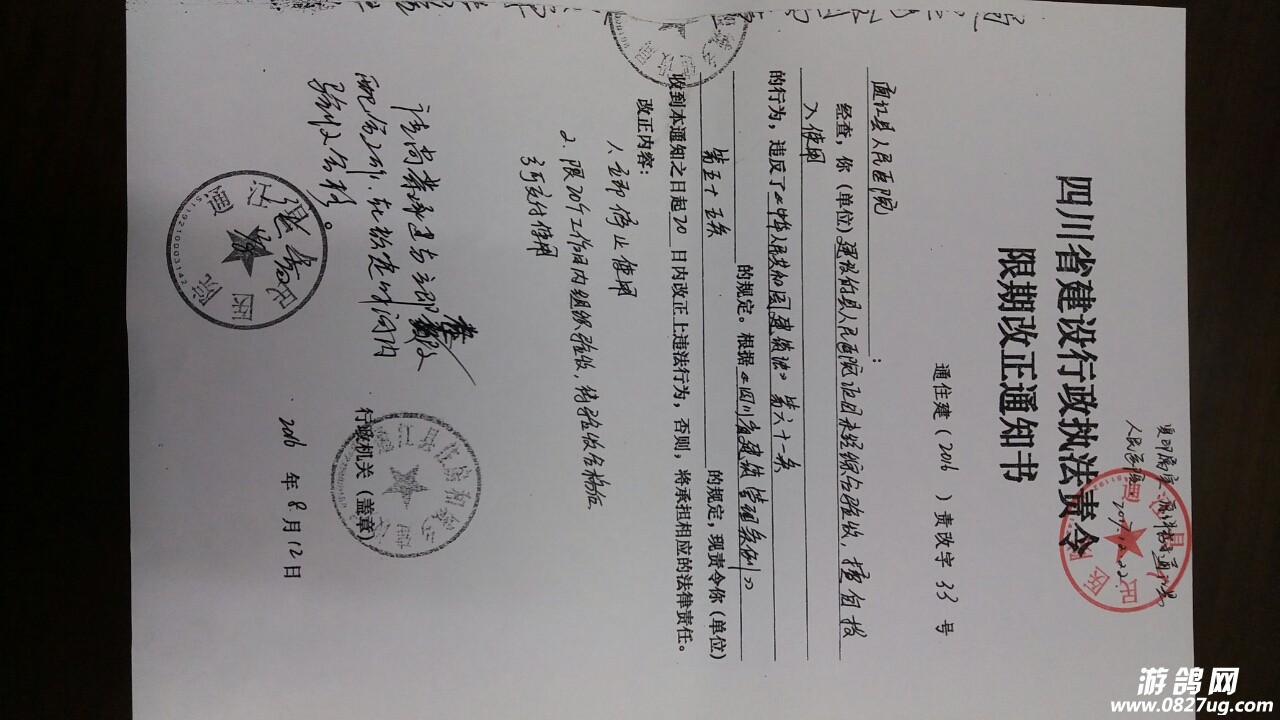 四川省建设行政执法责令
限期改正通知书
通住建（2016）责改字 33 号
通江县人民医院：
经查，你（单位）建设的县人民医院项目未经综合验收，擅自投
入使用
的行为，违反了《中华人民共和国建筑法》第六十一条
的规定。根据《四川省建筑管理条例》
第五十五条 的规定，现责令你（单位）
收到本通知之日起20日内改正上违法行为，否则，将承担相应的法律责任。
改正内容：
1. 立即停止使用
2. 限20个工作日内组织验收，待验收合格后
方可交付使用
行政机关（盖章）
2016 年 8 月 12 日
通江县人民医院
5119210003142
人民医院
2017.12.22
游鸽网
www.0827ug.com